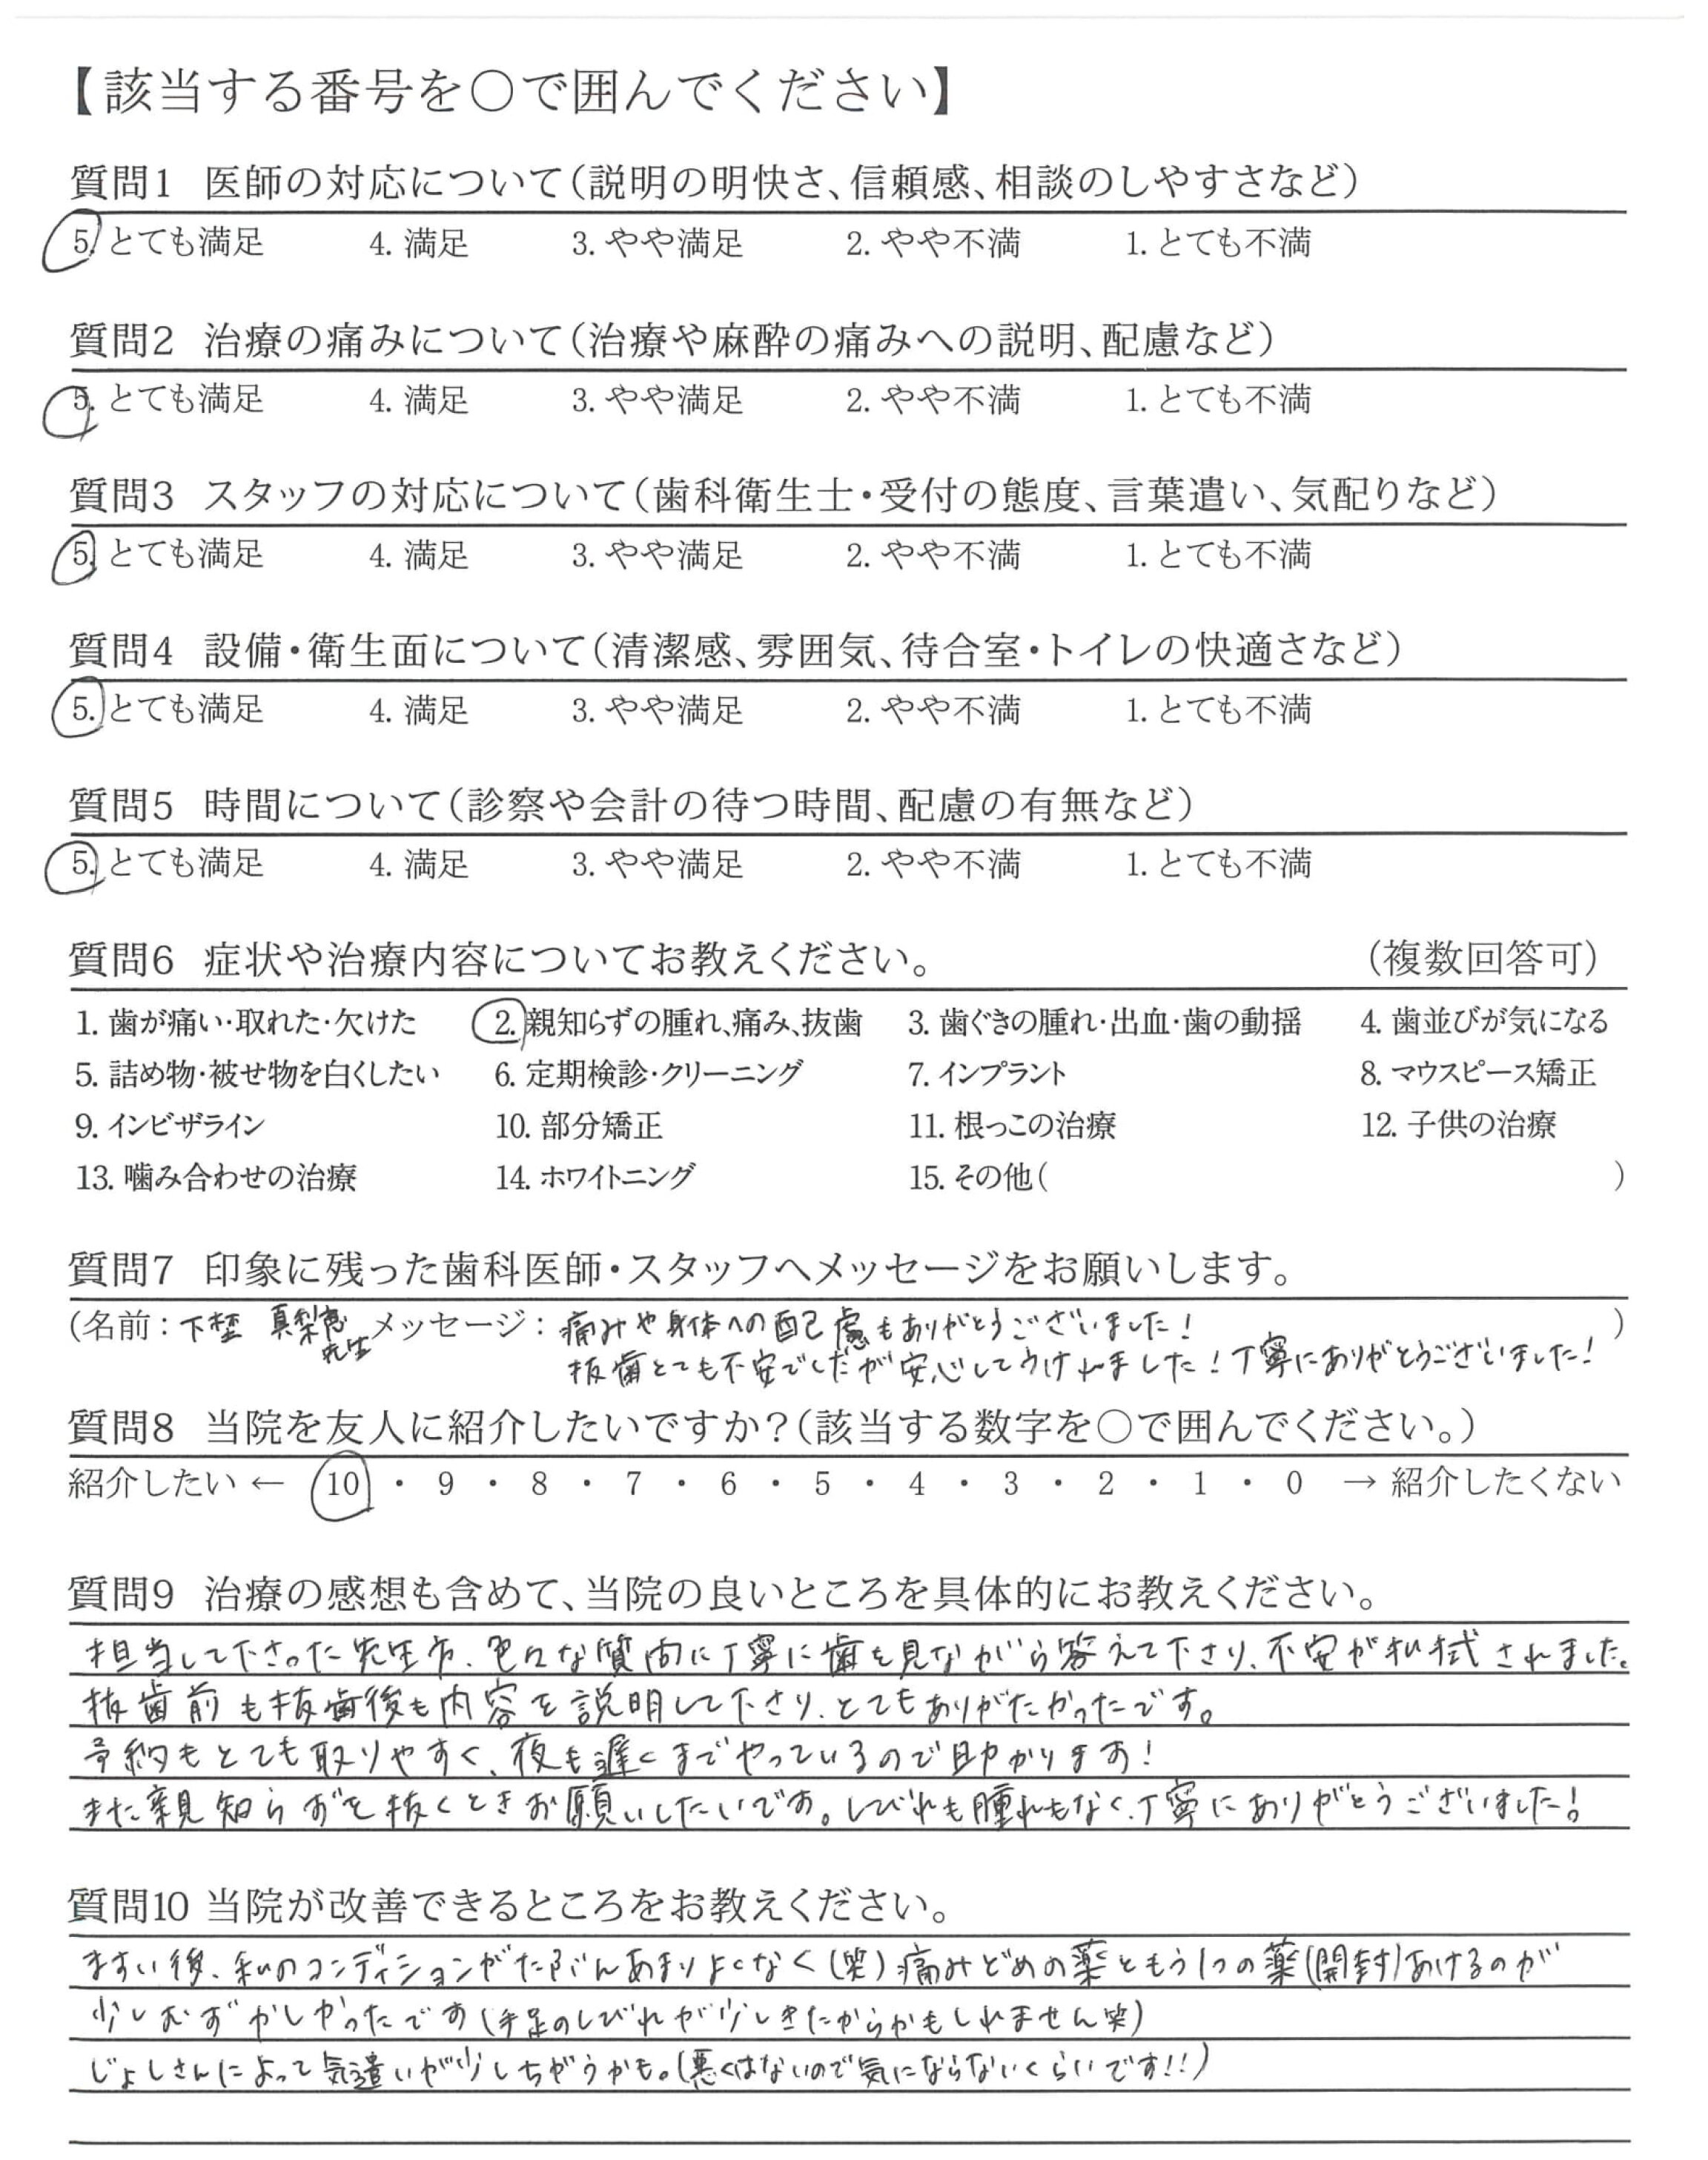 【該当する番号を○で囲んでください】
質問1 医師の対応について(説明の明快さ、信頼感、相談のしやすさなど)
5. とても満足 4. 満足 3. やや満足 2. やや不満 1. とても不満
質問2 治療の痛みについて(治療や麻酔の痛みへの説明、配慮など)
5. とても満足 4. 満足 3. やや満足 2. やや不満 1. とても不満
質問3 スタッフの対応について(歯科衛生士・受付の態度、言葉遣い、気配りなど)
5. とても満足 4. 満足 3. やや満足 2. やや不満 1. とても不満
質問4 設備・衛生面について(清潔感、雰囲気、待合室・トイレの快適さなど)
5. とても満足 4. 満足 3. やや満足 2. やや不満 1. とても不満
質問5 時間について(診察や会計の待つ時間、配慮の有無など)
5. とても満足 4. 満足 3. やや満足 2. やや不満 1. とても不満
質問6 症状や治療内容についてお教えください。 (複数回答可)
1. 歯が痛い・取れた・欠けた 2. 親知らずの腫れ、痛み、抜歯 3. 歯ぐきの腫れ・出血・歯の動揺 4. 歯並びが気になる
5. 詰め物・被せ物を白くしたい 6. 定期検診・クリーニング 7. インプラント 8. マウスピース矯正
9. インビザライン 10. 部分矯正 11. 根っこの治療 12. 子供の治療
13. 噛み合わせの治療 14. ホワイトニング 15. その他( )
質問7 印象に残った歯科医師・スタッフへメッセージをお願いします。
(名前: 真梨恵先生 メッセージ: 痛みや身体への配慮もありがとうございました! )
抜歯とても不安でしたが安心してうけれました!丁寧にありがとうございました!
質問8 当院を友人に紹介したいですか?(該当する数字を○で囲んでください。)
紹介したい ← 10 ・ 9 ・ 8 ・ 7 ・ 6 ・ 5 ・ 4 ・ 3 ・ 2 ・ 1 ・ 0 → 紹介したくない
質問9 治療の感想も含めて、当院の良いところを具体的にお教えください。
担当して下さった先生方、色々な質問に丁寧に歯を見ながら答えて下さり、不安が払拭されました。
抜歯前も抜歯後も内容を説明して下さり、とてもありがたかったです。
予約もとても取りやすく、夜も遅くまでやっているので助かります!
また親知らずを抜くときお願いしたいです。しびれも腫れもなく、丁寧にありがとうございました!
質問10 当院が改善できるところをお教えください。
ますい後、私のコンディションがたぶんあまりよくなく(笑)痛みどめの薬ともう1つの薬(開封)あけるのが
少しむずかしかったです(手足のしびれが少しきたからかもしれません笑)
じょしさんによって気遣いが少しちがうかも。(悪くはないので気にならないくらいです!!)